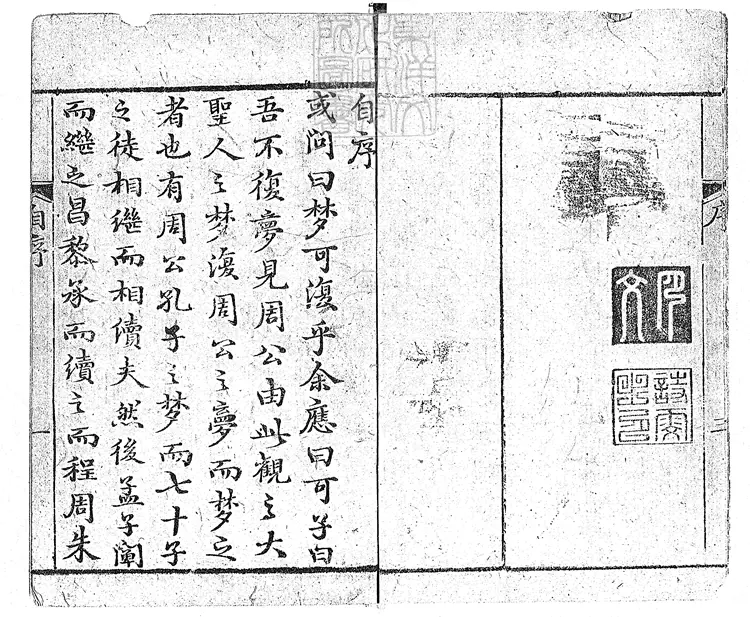 序
三
自序
或问曰梦可復乎余應曰可子曰
吾不復夢見周公由此觀之大
聖人之梦復周公之夢而梦之
者也有周公孔子之梦而七十子
之徒相繼而相續夫然後孟子闡
而繼之昌黎承而續之而程周朱
自序
一